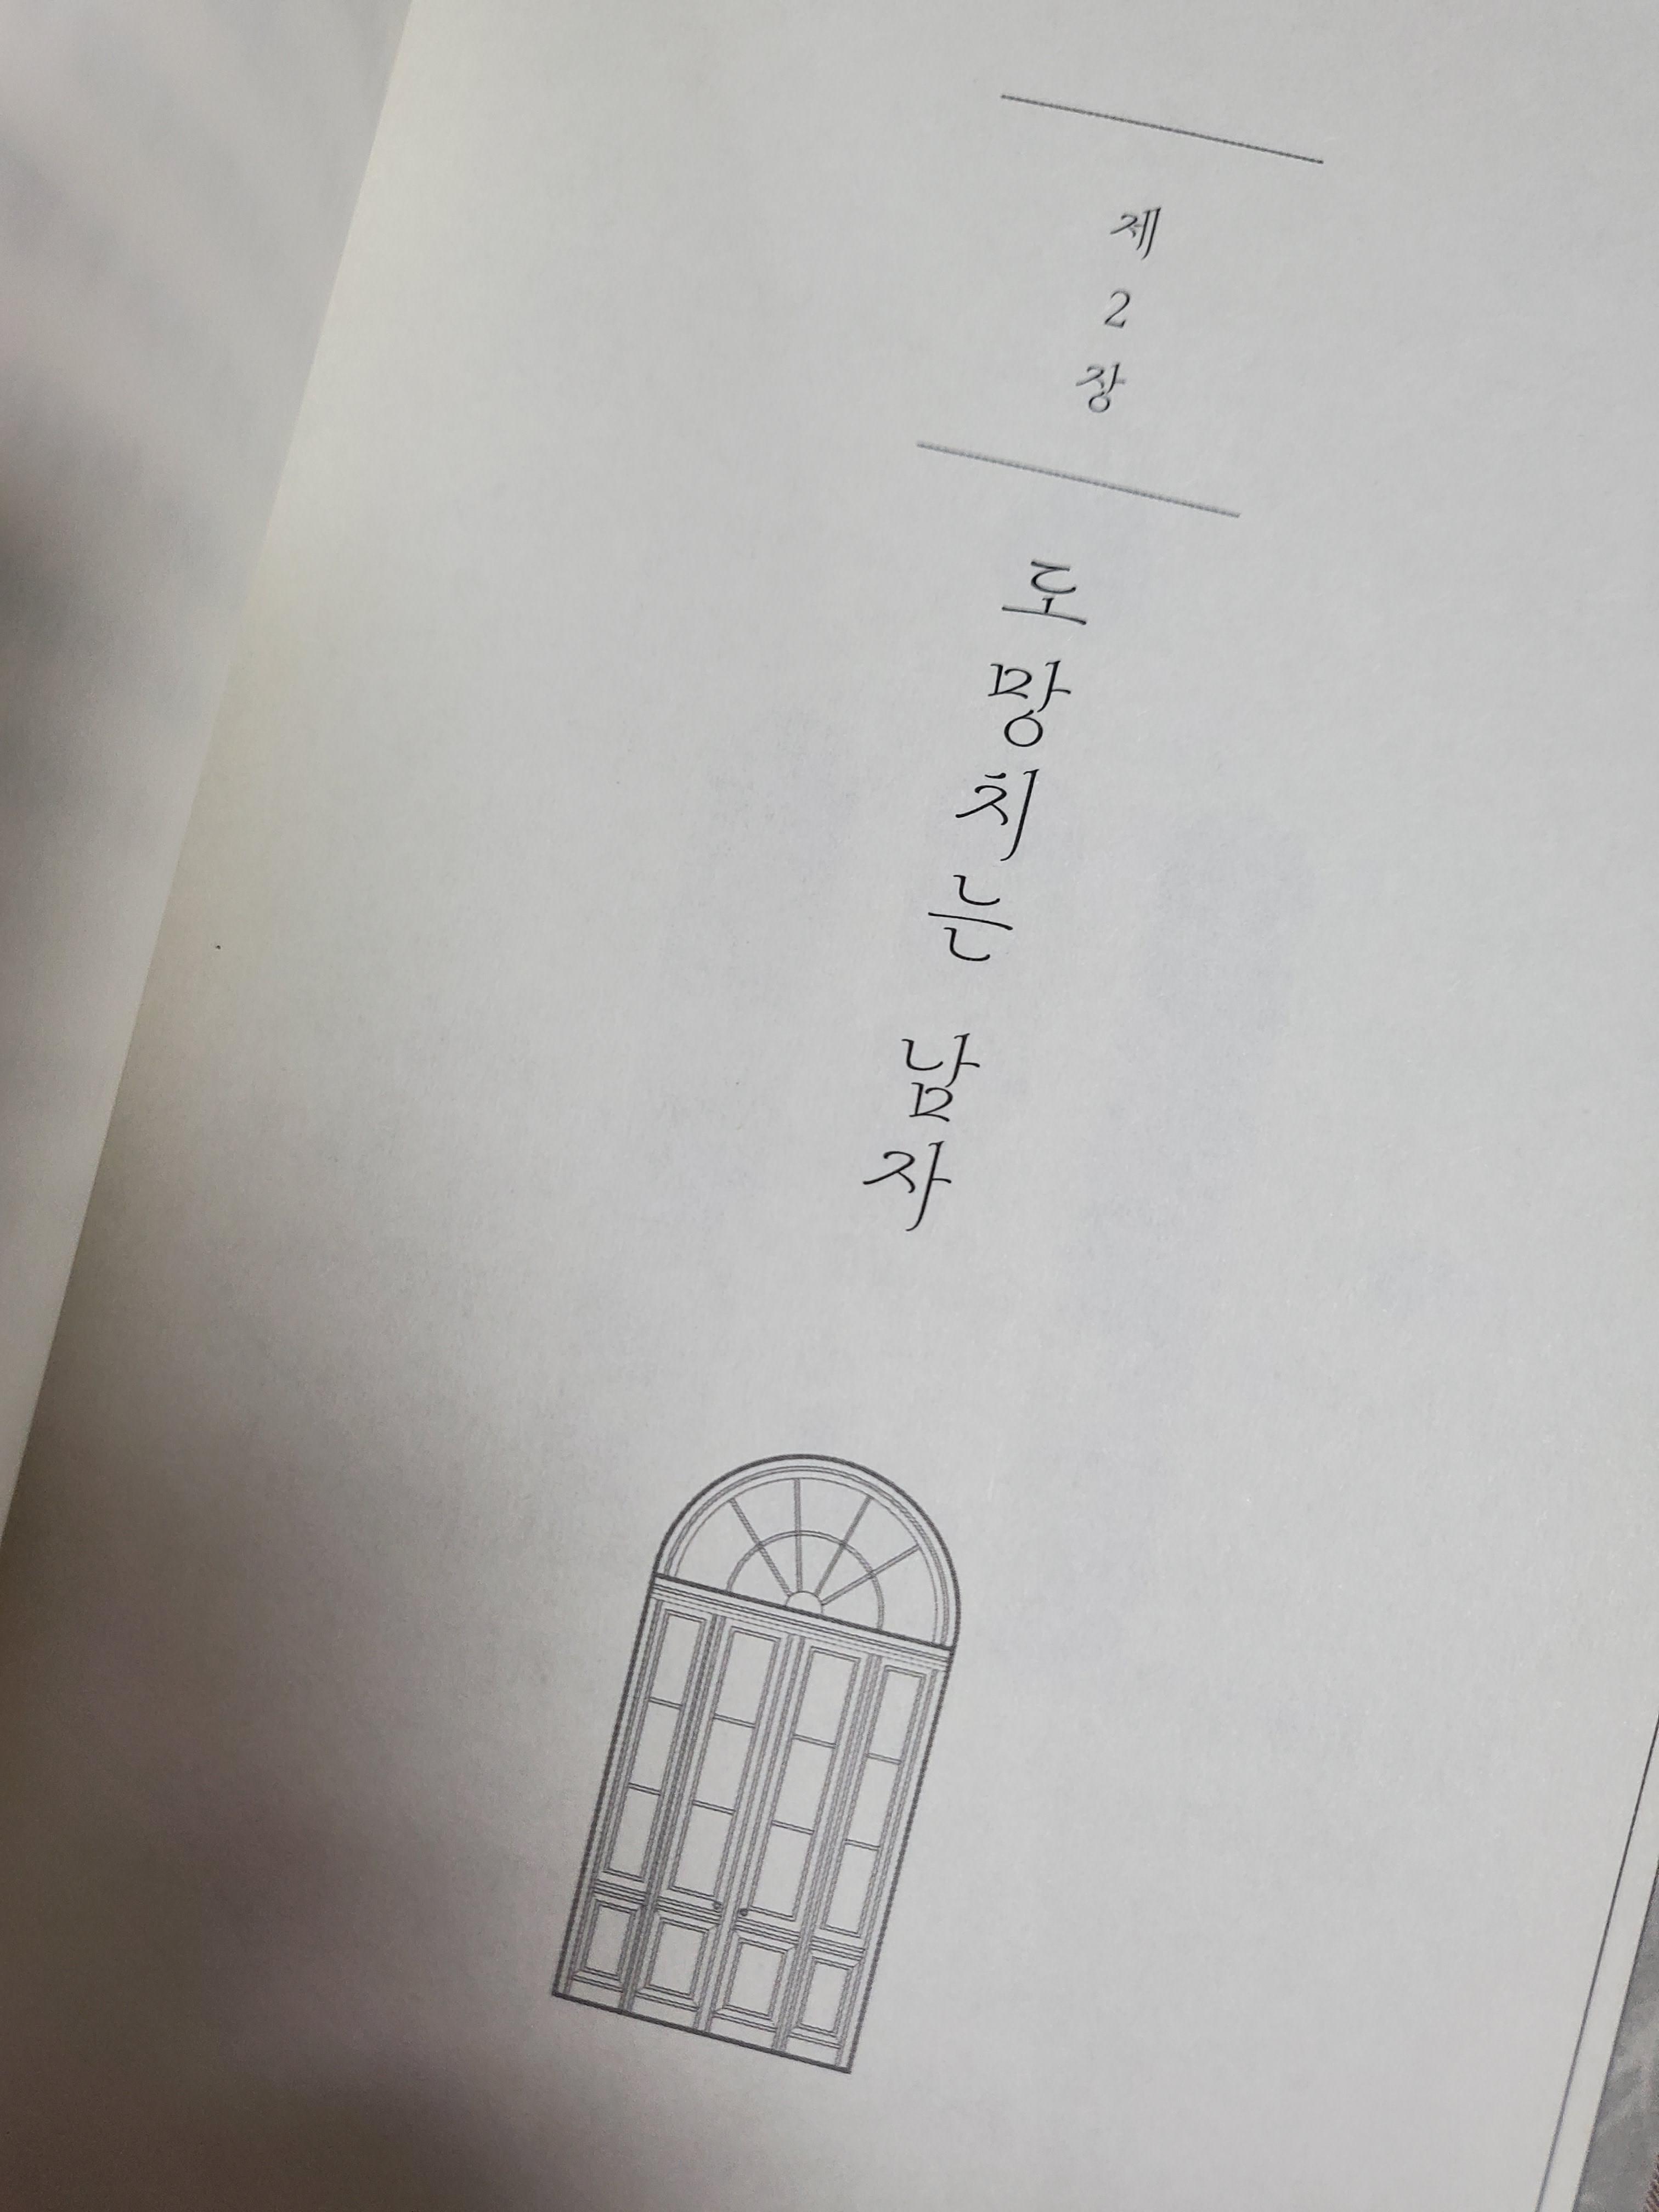 제2장
도망치는 남자